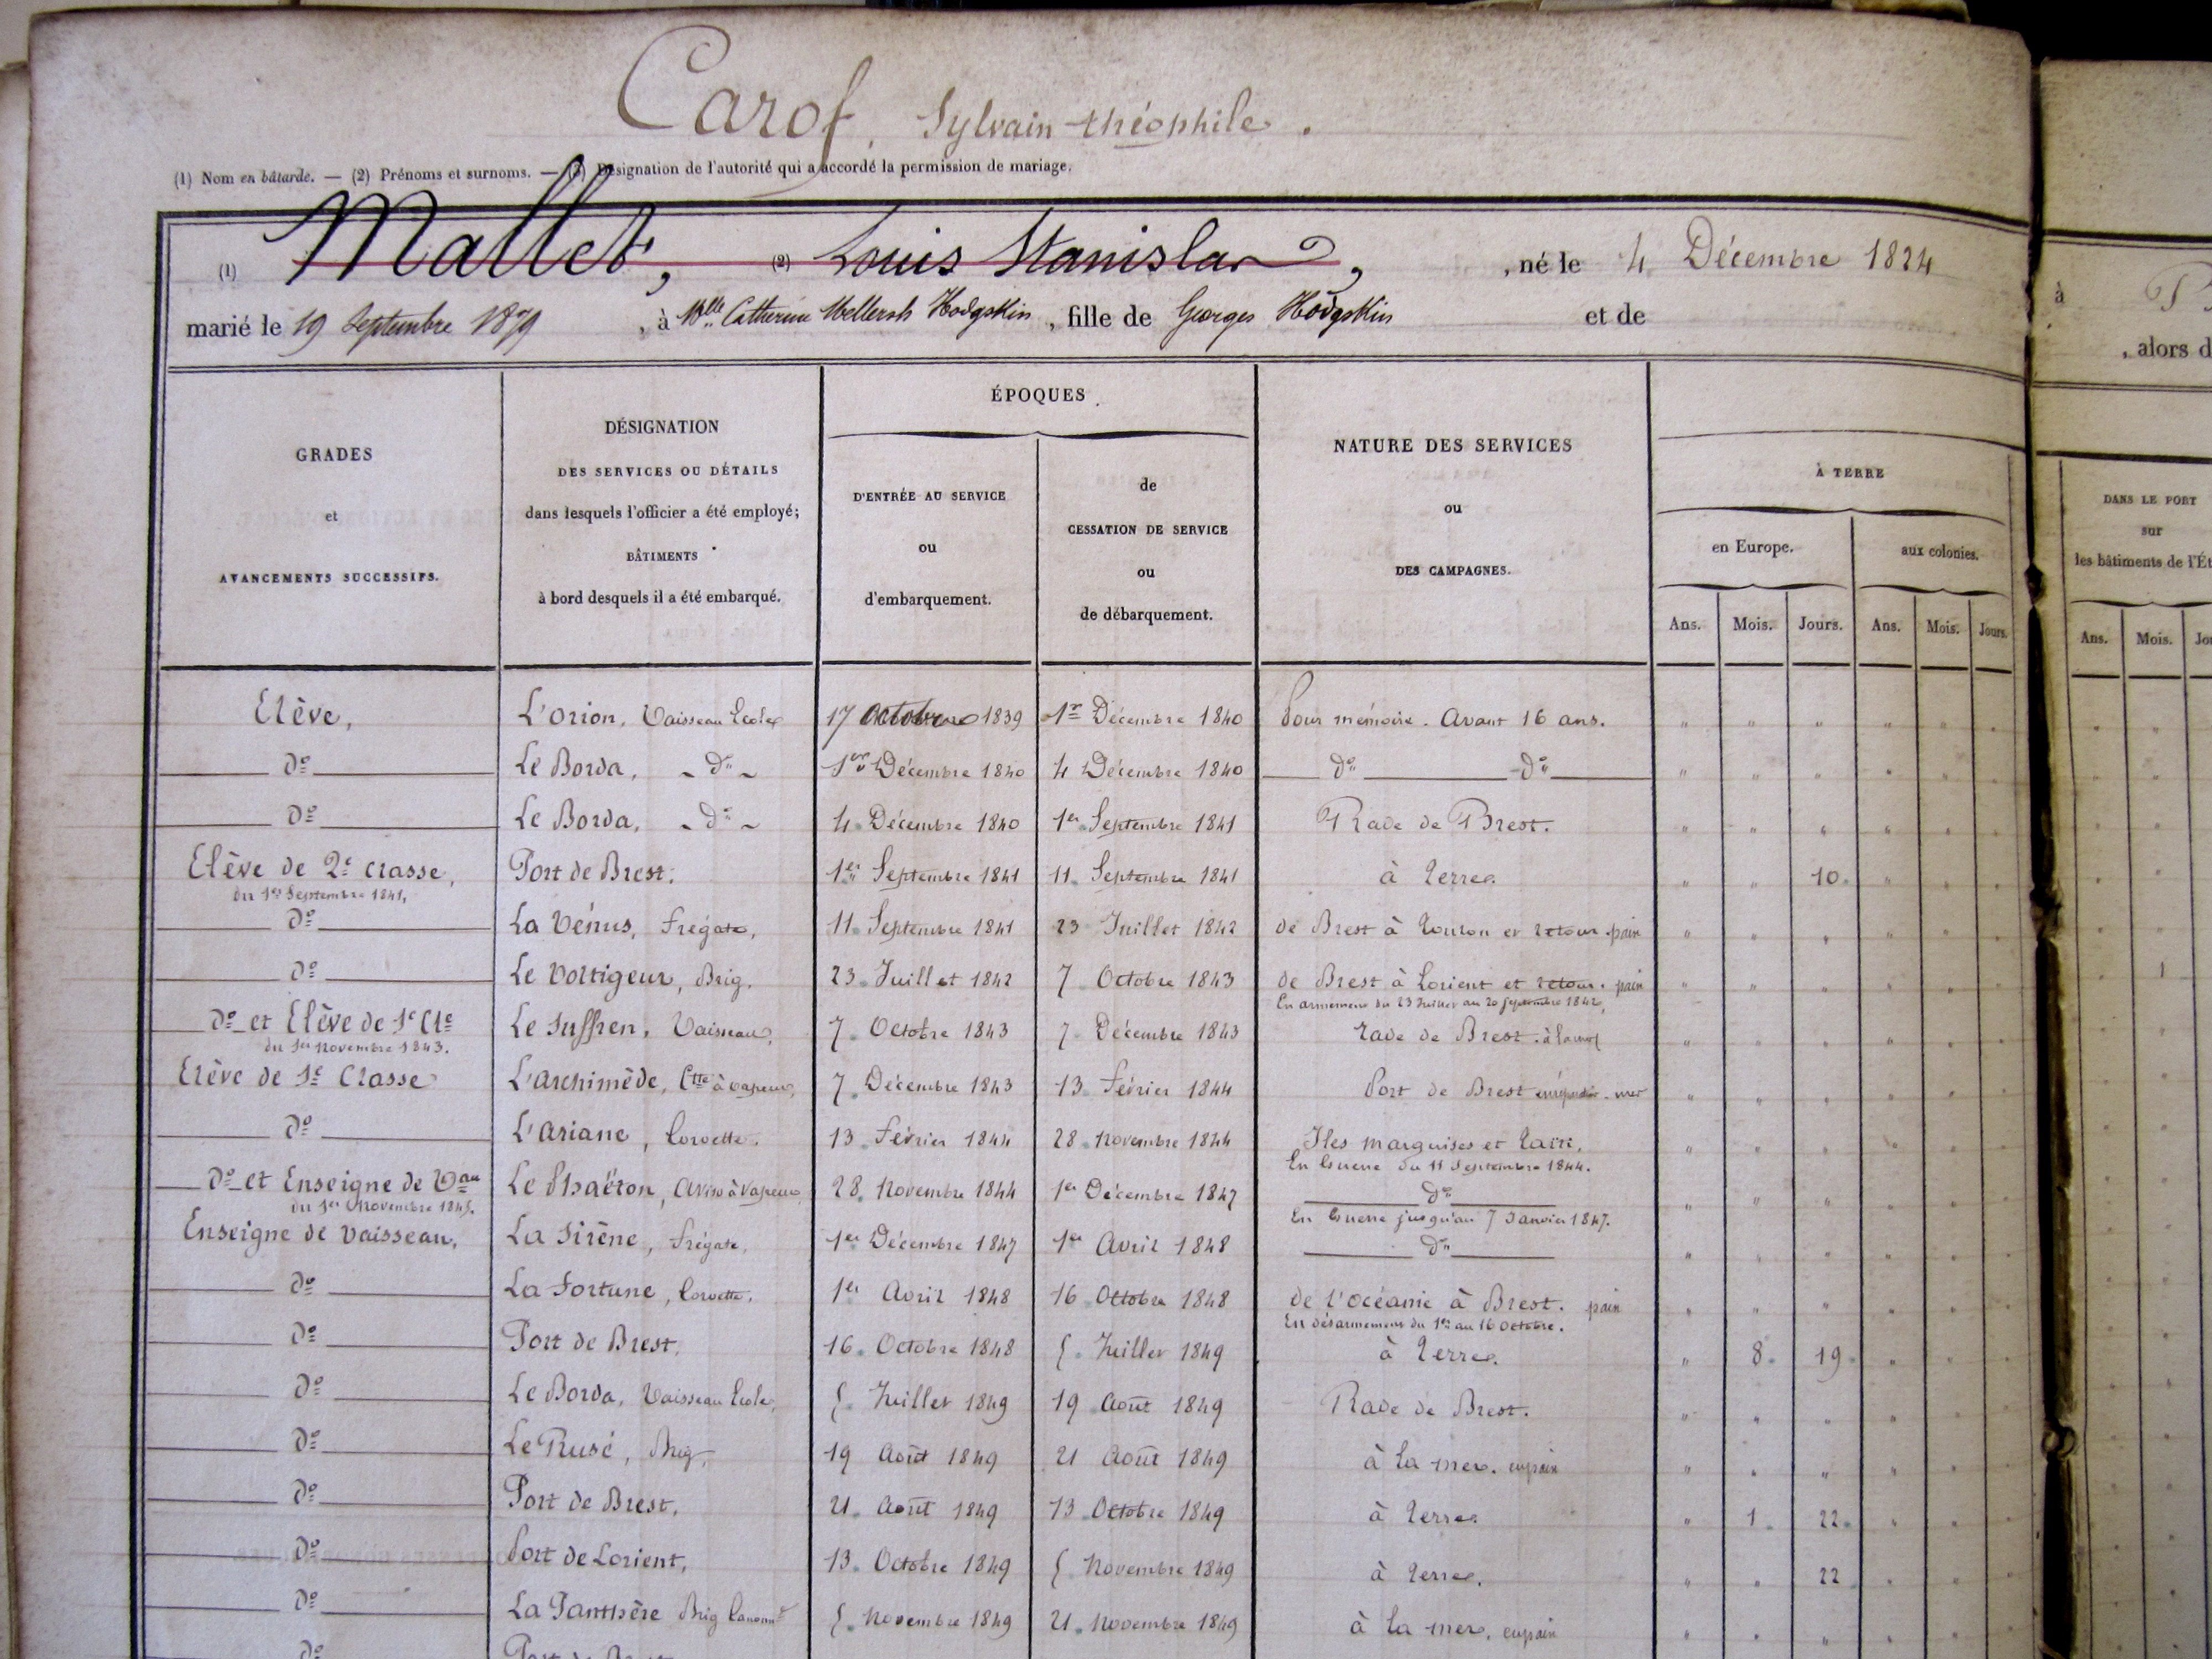 Carof, Sylvain théophile.
(1) Nom en bâtarde. — (2) Prénoms et surnoms. — (3) Désignation de l'autorité qui a accordé la permission de mariage.
(1) Mallet, (2) Louis Stanislas, , né le 4 Décembre 1824
marié le 19 Septembre 1879, à Melle Catherine Mellersh Hodgskin, fille de Georges Hodgskin et de
à
, alors d
GRADES
et
AVANCEMENTS SUCCESSIFS.
DÉSIGNATION
DES SERVICES OU DÉTAILS
dans lesquels l'officier a été employé;
BÂTIMENTS
à bord desquels il a été embarqué.
ÉPOQUES
D'ENTRÉE AU SERVICE
ou
d'embarquement.
de
CESSATION DE SERVICE
ou
de débarquement.
NATURE DES SERVICES
ou
DES CAMPAGNES.
À TERRE
en Europe. aux colonies.
Ans. Mois. Jours. Ans. Mois. Jours.
DANS LE PORT
sur
les bâtiments de l'Ét
Ans. Mois. Jou
Elève, L'Orion, Vaisseau Ecole 17 Octobre 1839 1er Décembre 1840 Pour mémoire. Avant 16 ans. " " " " " "
do Le Borda, - do - 1er Décembre 1840 4 Décembre 1840 do do " " " " " "
do Le Borda, - do - 4. Décembre 1840 1er Septembre 1841 Rade de Brest. " " " " " "
Elève de 2e Classe, Port de Brest. 1er Septembre 1841 11. Septembre 1841 à Terre. " " 10. " " "
du 1er Septembre 1841,
do La Vénus, frégate, 11. Septembre 1841 23 Juillet 1842 de Brest à Toulon et retour. paix " " " " " "
do Le Voltigeur, Brig. 23. Juillet 1842 7 Octobre 1843 de Brest à Lorient et retour. paix " " " " " " 1
En armement du 23 Juillet au 20 Septembre 1842,
do et Elève de 1e Cle Le Suffren, Vaisseau, 7. Octobre 1843 7. Décembre 1843 rade de Brest. " " " " " "
du 1er Novembre 1843.
Elève de 1e Classe L'Archimède, Ctte à vapeur, 7. Décembre 1843 13. Février 1844 Port de Brest mer " " " " " "
do L'Ariane, Corvette. 13. Février 1844 28. Novembre 1844 Iles Marquises et Taïti, " " " " " "
En Guerre du 11 Septembre 1844.
do et Enseigne de Vau Le Phaëton, Aviso à Vapeur 28. Novembre 1844 1er Décembre 1847 do " " " " " "
du 1er Novembre 1845.
En Guerre jusqu'au 7 Janvier 1847.
Enseigne de Vaisseau, La Sirène, frégate, 1er Décembre 1847 1er Avril 1848 do " " " " " "
do La Fortune, Corvette. 1er Avril 1848 16 Octobre 1848 de l'océanie à Brest. paix " " " " " "
En désarmement du 1er au 16 Octobre.
do Port de Brest. 16. Octobre 1848 5. Juillet 1849 à Terre. " 8. 19. " " "
do Le Borda, Vaisseau Ecole, 5. Juillet 1849 19 Août 1849 Rade de Brest. " " " " " "
do Le Rusé, Brig, 19 Août 1849 21 Août 1849 à la mer. en paix " " " " " "
do Port de Brest, 21. Août 1849 13 Octobre 1849 à Terre. " 1. 22. " " "
do Port de Lorient, 13. Octobre 1849 5 Novembre 1849 à Terre. " " 22 " " "
do La Panthère Brig Canonnr 5. Novembre 1849 21. Novembre 1849 à la mer, en paix " " " " " "
do